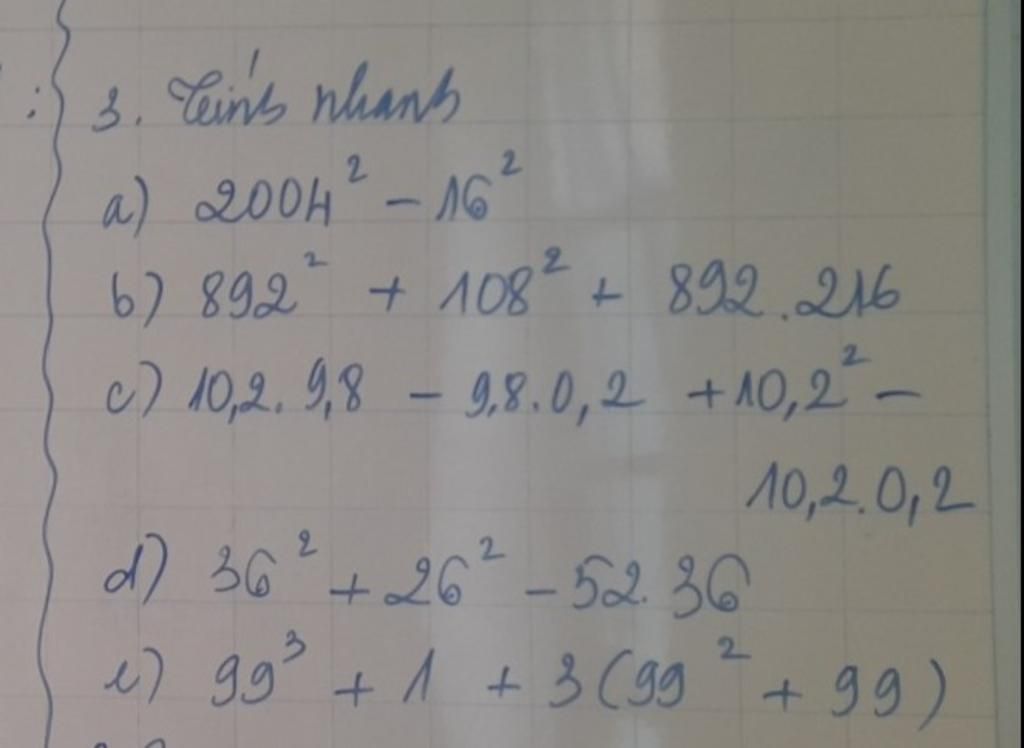 3. Tính nhanh
a) 2004² - 16²
b) 892² + 108² + 892.216
c) 10,2.9,8 - 9,8.0,2 + 10,2² -
10,2.0,2
d) 36² + 26² - 52.36
e) 99³ + 1 + 3(99² + 99)